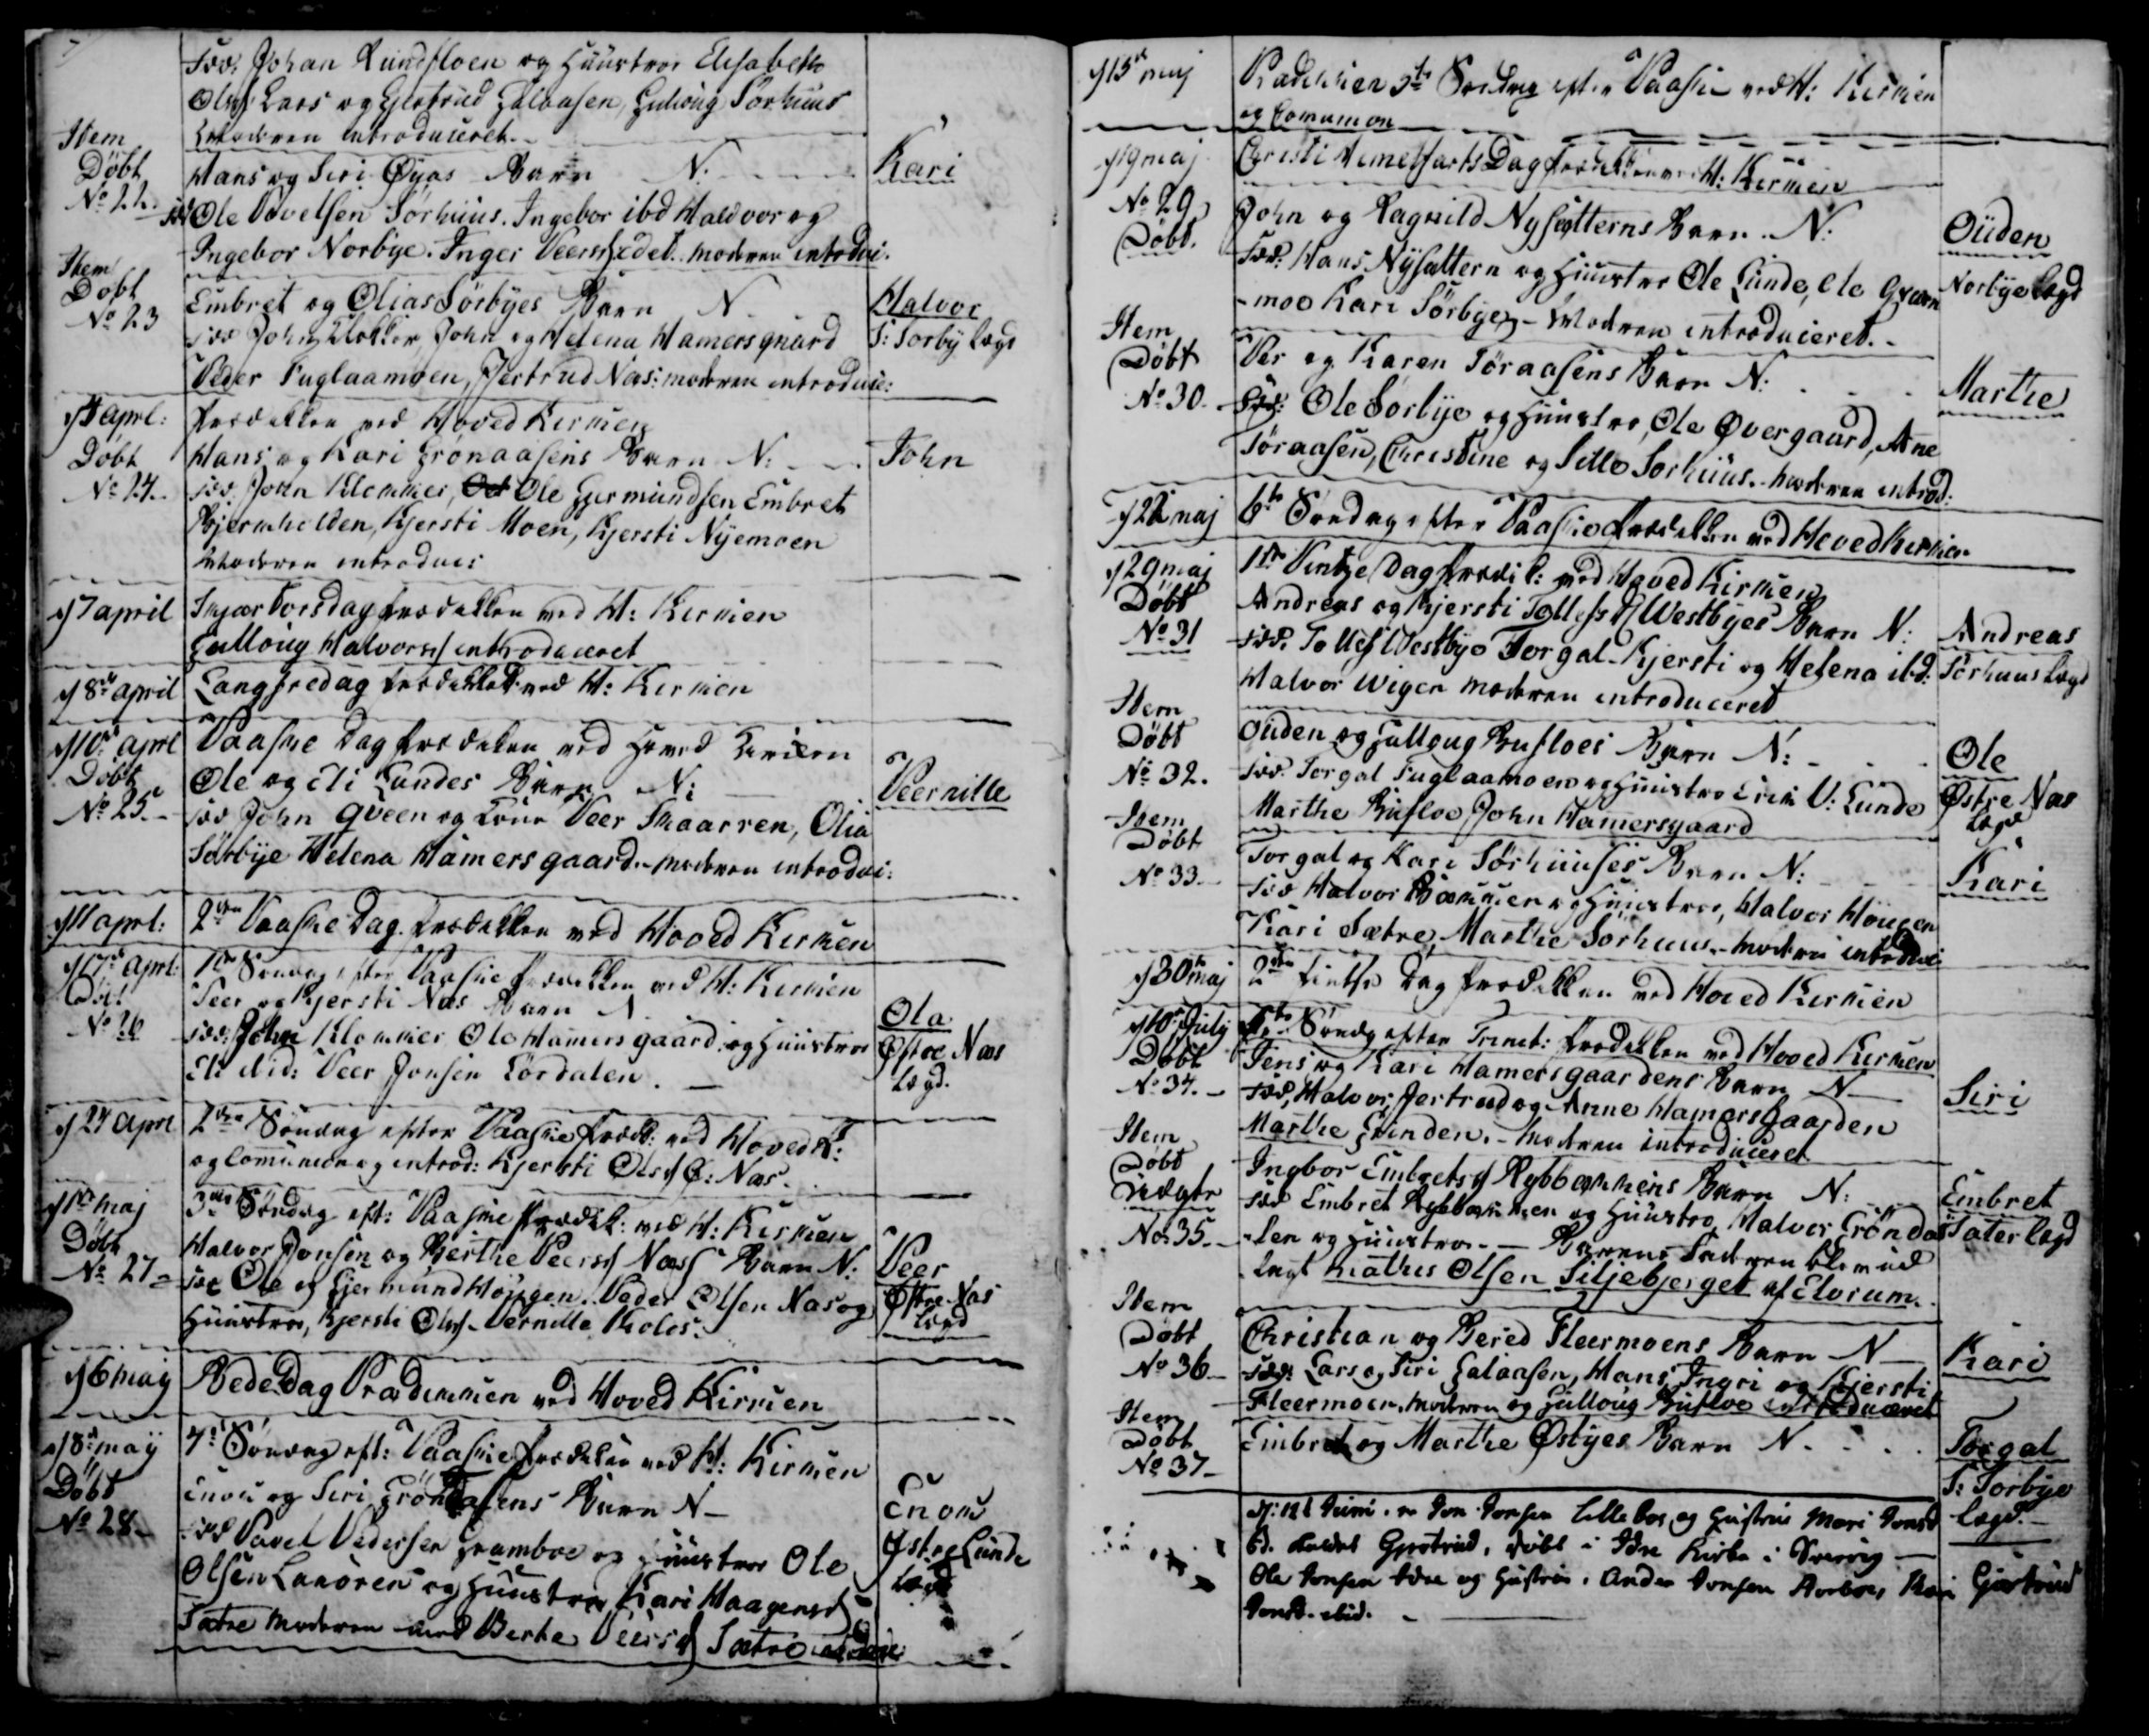 Fad: Johan Lundfloen og Huustroe Elisabeth
Olsd: Lars og Gjertrud Galaasen, Guloug Sörhuus
Moderen introduceret.
Item
Döbt
No 22.
Hans og Siri Øyas Barn N:
Kari
Fad Ole Povelsen Sörhuus. Ingebor ibd Haldvor og
Ingebor Norbye. Inger Veersch moderen introdu:
Item
Döbt
No 23
Embret og Olias Sörbyes Barn N
Halvor
S: Sorby Lægd
Fad John Klokker, John og Helena Hamersgaard
Peder Fuglaamoen, Jertrud Næs: moderen introduce:
aprl:
Prædikken ved Hoved Kirken
Döbt
No 24.
Hans og Kari Grönaasens Barn N:
John
Fad. John Klocker, Ole Gjermundsen Embret
Bjermholden, Kjersti Moen, Kjersti Nyemoen
Moderen introduc:
7 april
Skjær Torsdag Prædikken ved H: Kirken
Gulloug Halvorsd introduceret
8de april
Langfredag Prædikken ved H: Kirken
10de aprl
Paaske Dag Prædiken ved Hoved Kirken
Döbt
No 25.
Ole og Eli Lundes Barn N:
Peernille
Fad John Qveen og Kone Peer Skaarren, Olia
Sørbye Helena Hamersgaard. Moderen introduc:
11 aprl:
2den Paaske Dag. Prædikken ved Hoved Kirken
17de aprl:
1ste Søndag efter Paaske Prædikken ved H: Kirken
Döbt
No 26
Peer og Kjersti Næs Barn N
Ola
Østre Næs
Lægd.
Fad: John Klocker Ole Hamersgaard og Huustroe
Eli ibid: Peer Jonsen Lördalen.
24 aprl
2den Søndag efter Paaske Præd: ved Hoved K:
og Comunion og introd: Kjersti Olsd Ø: Næs.
1ste maj
3die Søndag eft: Paaske Prædik: ved H: Kirken
Döbt
No 27
Halvor Jonsen og Berthe Peersd Næss Barn N:
Peer
Østre Næs
Lægd
Fad Ole og Gjermund Höugen. Peder Olsen Næs og
Huustroe, Kjersti Olsd Pernille Kolos.
6 maj
Bede Dag Prædikken ved Hoved Kirken
8de may
4de Søndag eft: Paaske Prædiken ved H: Kirken
Döbt
No 28
Enou og Siri Gröndalens Barn N
Enou
Østre Lunde
Lægd
Fad Pavel Pedersen Gramboe og Huustroe Ole
Olsen Lanören og Huustroe Kari Haagensd
Sætre Moderen med Berte Peersd Sætre introduc
15de maj
Prædikken 5te Søndag efter Paaske ved H: Kirken
og Comunion
19 maj
Christi Hemelfarts Dag Prædikken ved H: Kirken
No 29
Döbt.
John og Ragnild Nysætterns Barn N:
Ouden
Norbye Lægd
Fad: Hans Nysættern og Huustro Ole Lunde, Ole Græn
moe Kari Sörbye, Moderen introduceret.
Item
Döbt
No 30.
Per og Karen Töraasens Barn N:
Marthe
Fad: Ole Sörbye og Huustro, Ole Øvergaard, Ane
Töraasen, Christine og Sille Sorhuus. Moderen introd:
22 maj
6te Søndag efter Paaske Prædikken ved Hoved Kirken
29 maj
1ste Pintze Dag Prædik: ved Hoved Kirken
Döbt
No 31
Andreas og Kjersti Tollefsd Westbyes Barn N:
Andreas
Sörhuus Lægd
Fad. Tollef Westbye Torgal Kjersti og Helena ibd:
Halvor Wigen Moderen introduceret
Item
Döbt
No 32.
Ouden og Gulloug Rufloes Barn N:
Ole
Østre Næs
Lægd
Fad. Torgal Fuglaamoen og Huustro Erik V: Lunde
Marthe Rufloe John Hamersgaard
Item
Döbt
No 33.
Torgal og Kari Sörhuuses Barn N:
Kari
Fad Halvor Bækken og Huustroe, Halvor Höugen
Kari Sætre, Marthe Sorhuus. Moderen introduc
30te maj
2den Pintse Dag Prædikken ved Hoved Kirken
10de July
Søndag efter Trinit: Prædikken ved Hoved Kirken
Döbt
No 34.
Jens og Kari Hamersgaardens Barn N
Siri
Fad, Halvor, Jertrud og Anne Hamersgaarden
Marthe Grinden. Moderen introduceret
Item
Döbt
Uægte
No 35.
Ingbor Embretsd Rybbækkens Barn N:
Embret
Sæter Lægd
Fad Embret Rybbækken og Huustro, Halvor Gröndalen og Huustroe. Barnets Fader blev ud
lagt Mathis Olsen Siljebjerget af Elvrum.
Item
Döbt
No 36
Christian og Bered Fleermoens Barn N
Kari
Fad: Lars og Siri Galaasen, Hans, Ingri og Kjersti
Fleermoen, Moderen og Gulloug Rufloe introduceret
Item
Döbt
No 37
Embret og Marthe Østbyes Barn N.
Torgal
S: Sorbye
Lægd.
d: 12te Juni. er Jon Jonsen Lillebo og Hustrue Mari Jonsd
Bd. kaldet Gjertrud, döbt i Idre Kirke i Sverrig
Gjertrud
Ole Jonsen Idre og Hustrue. Anders Jonsen Kari
Jonsd. ibid.